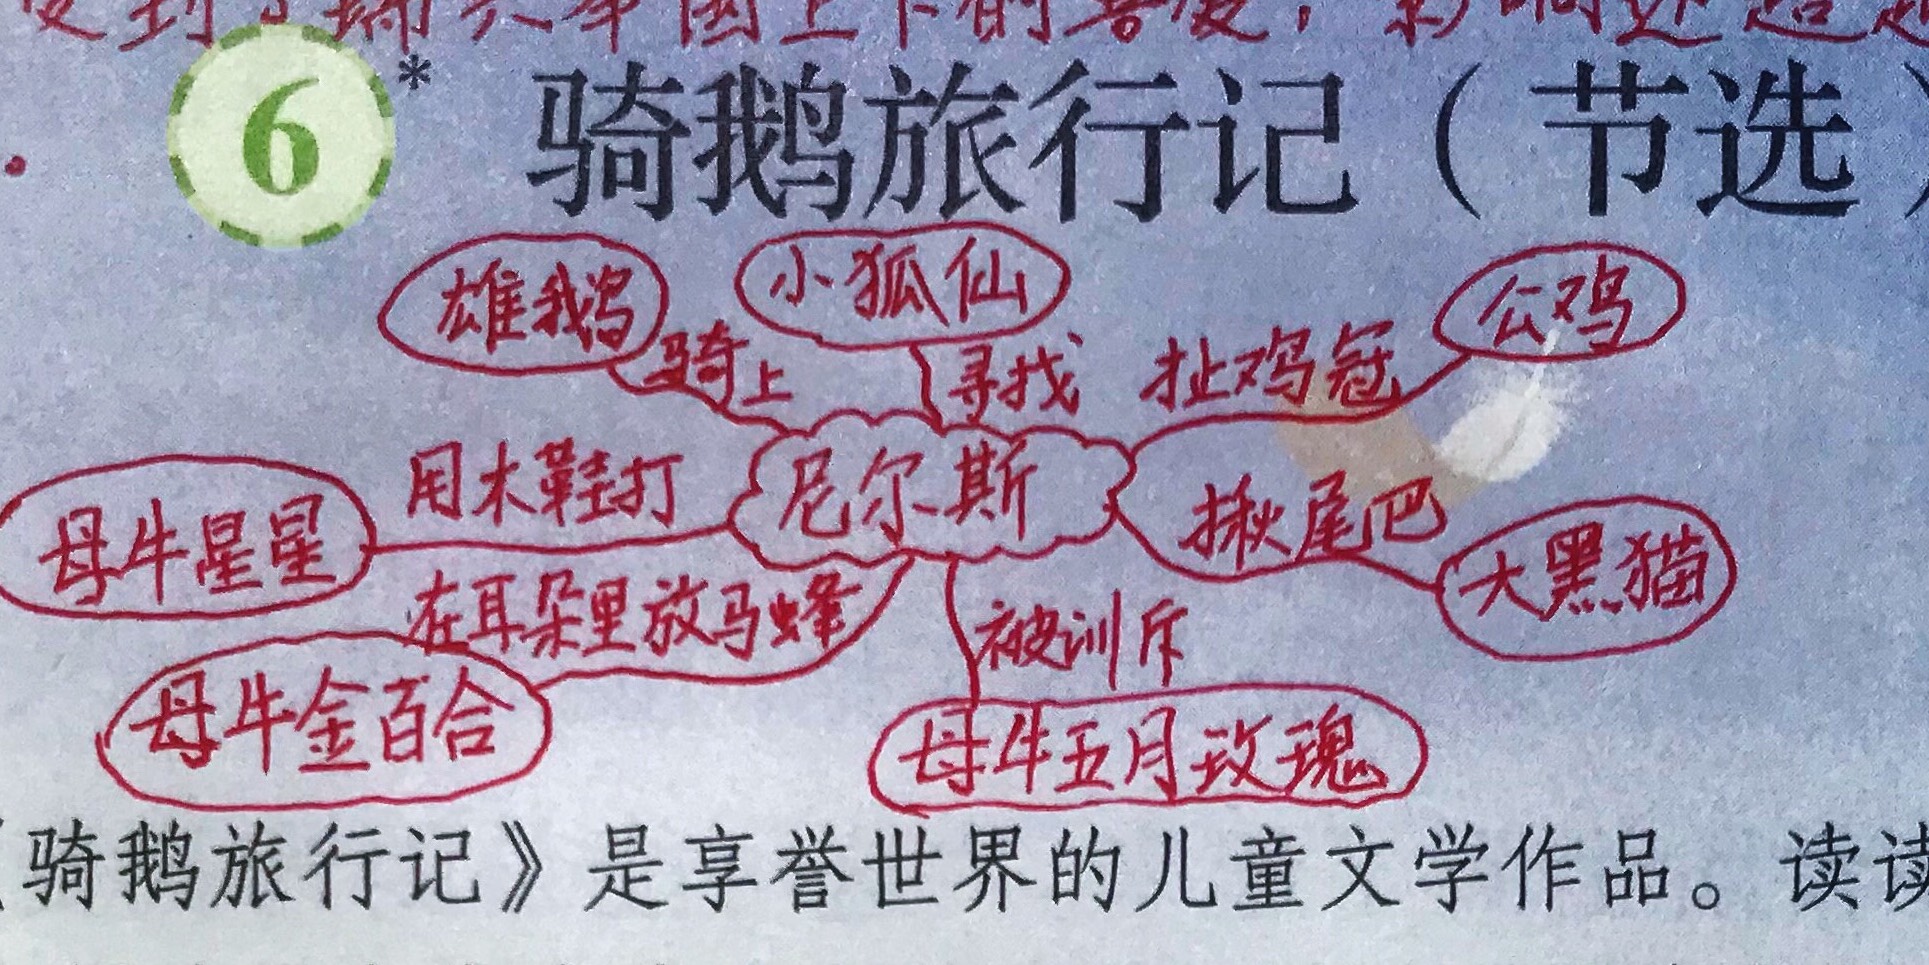 受到了瑞典举国上下的喜爱,影响还超
6* 骑鹅旅行记(节选)
雄鹅
小狐仙
公鸡
骑上
寻找
扯鸡冠
用木鞋打
尼尔斯
揪尾巴
母牛星星
大黑猫
在耳朵里放马蜂
被训斥
母牛金百合
母牛五月玫瑰
《骑鹅旅行记》是享誉世界的儿童文学作品。读读